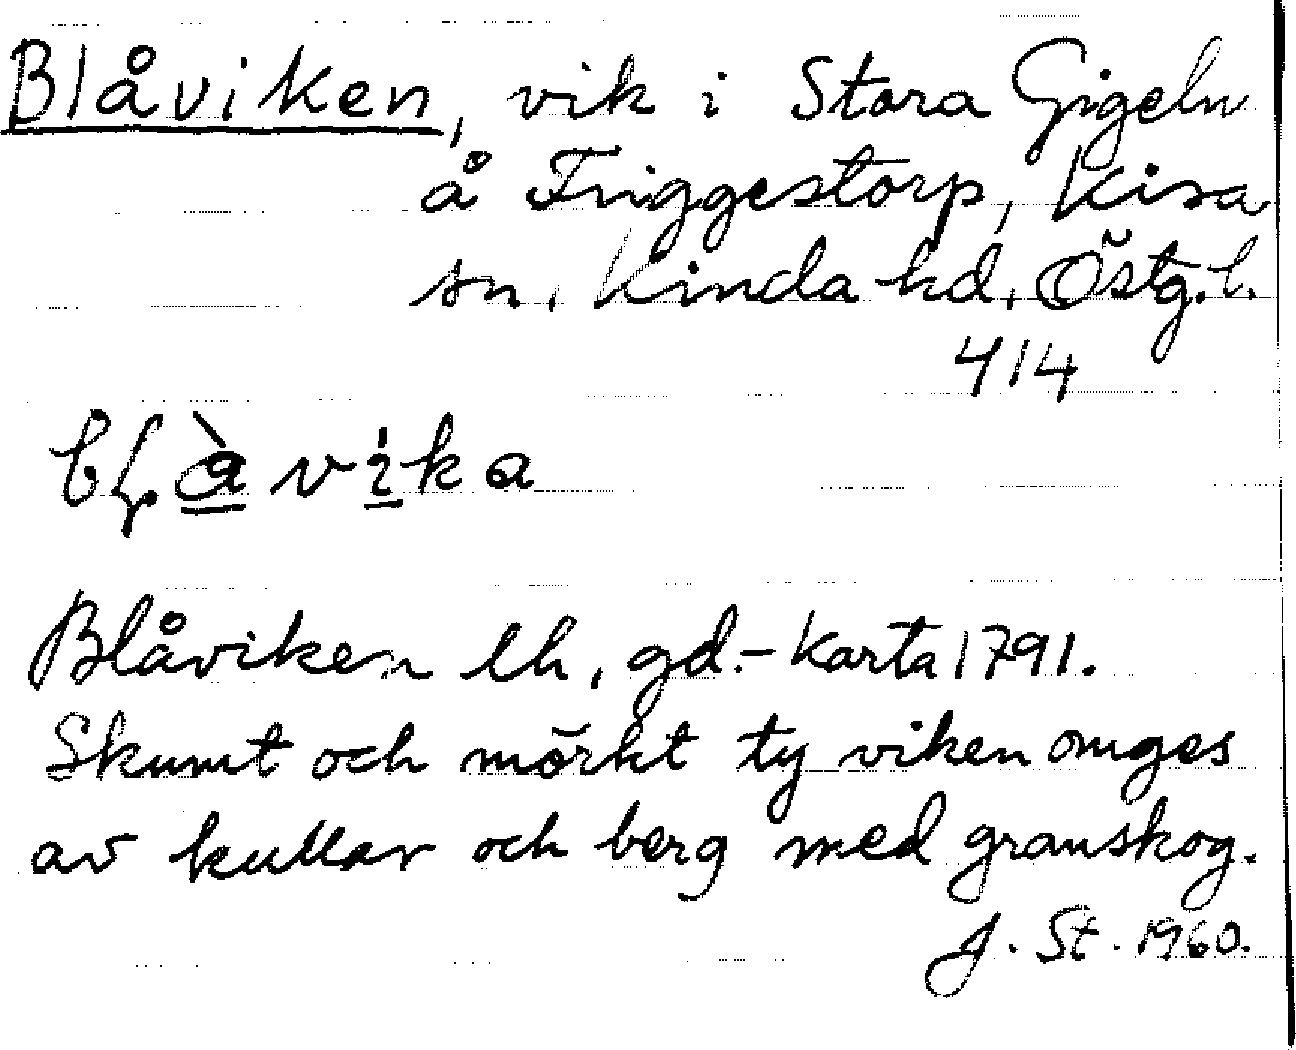 Blåviken, vik i Stora Gigeln
å Friggestorp, Kisa
sn, Kinda hd, Östg. l.
414
Blåviken lh, gd.-Karta 1791.
Skumt och mörkt ty viken omges
av kullar och berg med granskog.
J. St. 1960.